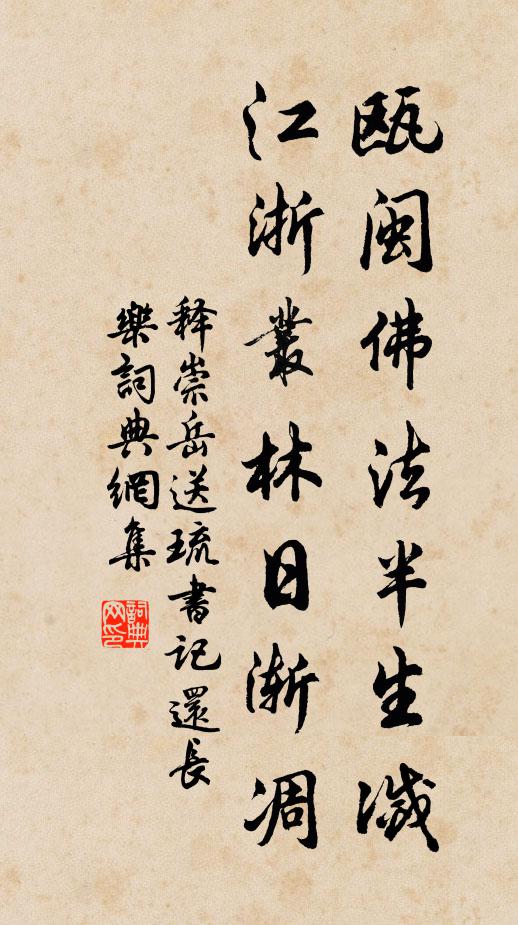 甌閩佛法半生滅
江浙叢林日漸凋
释崇岳送琉書記還長
樂詞典網集
詞典
网印